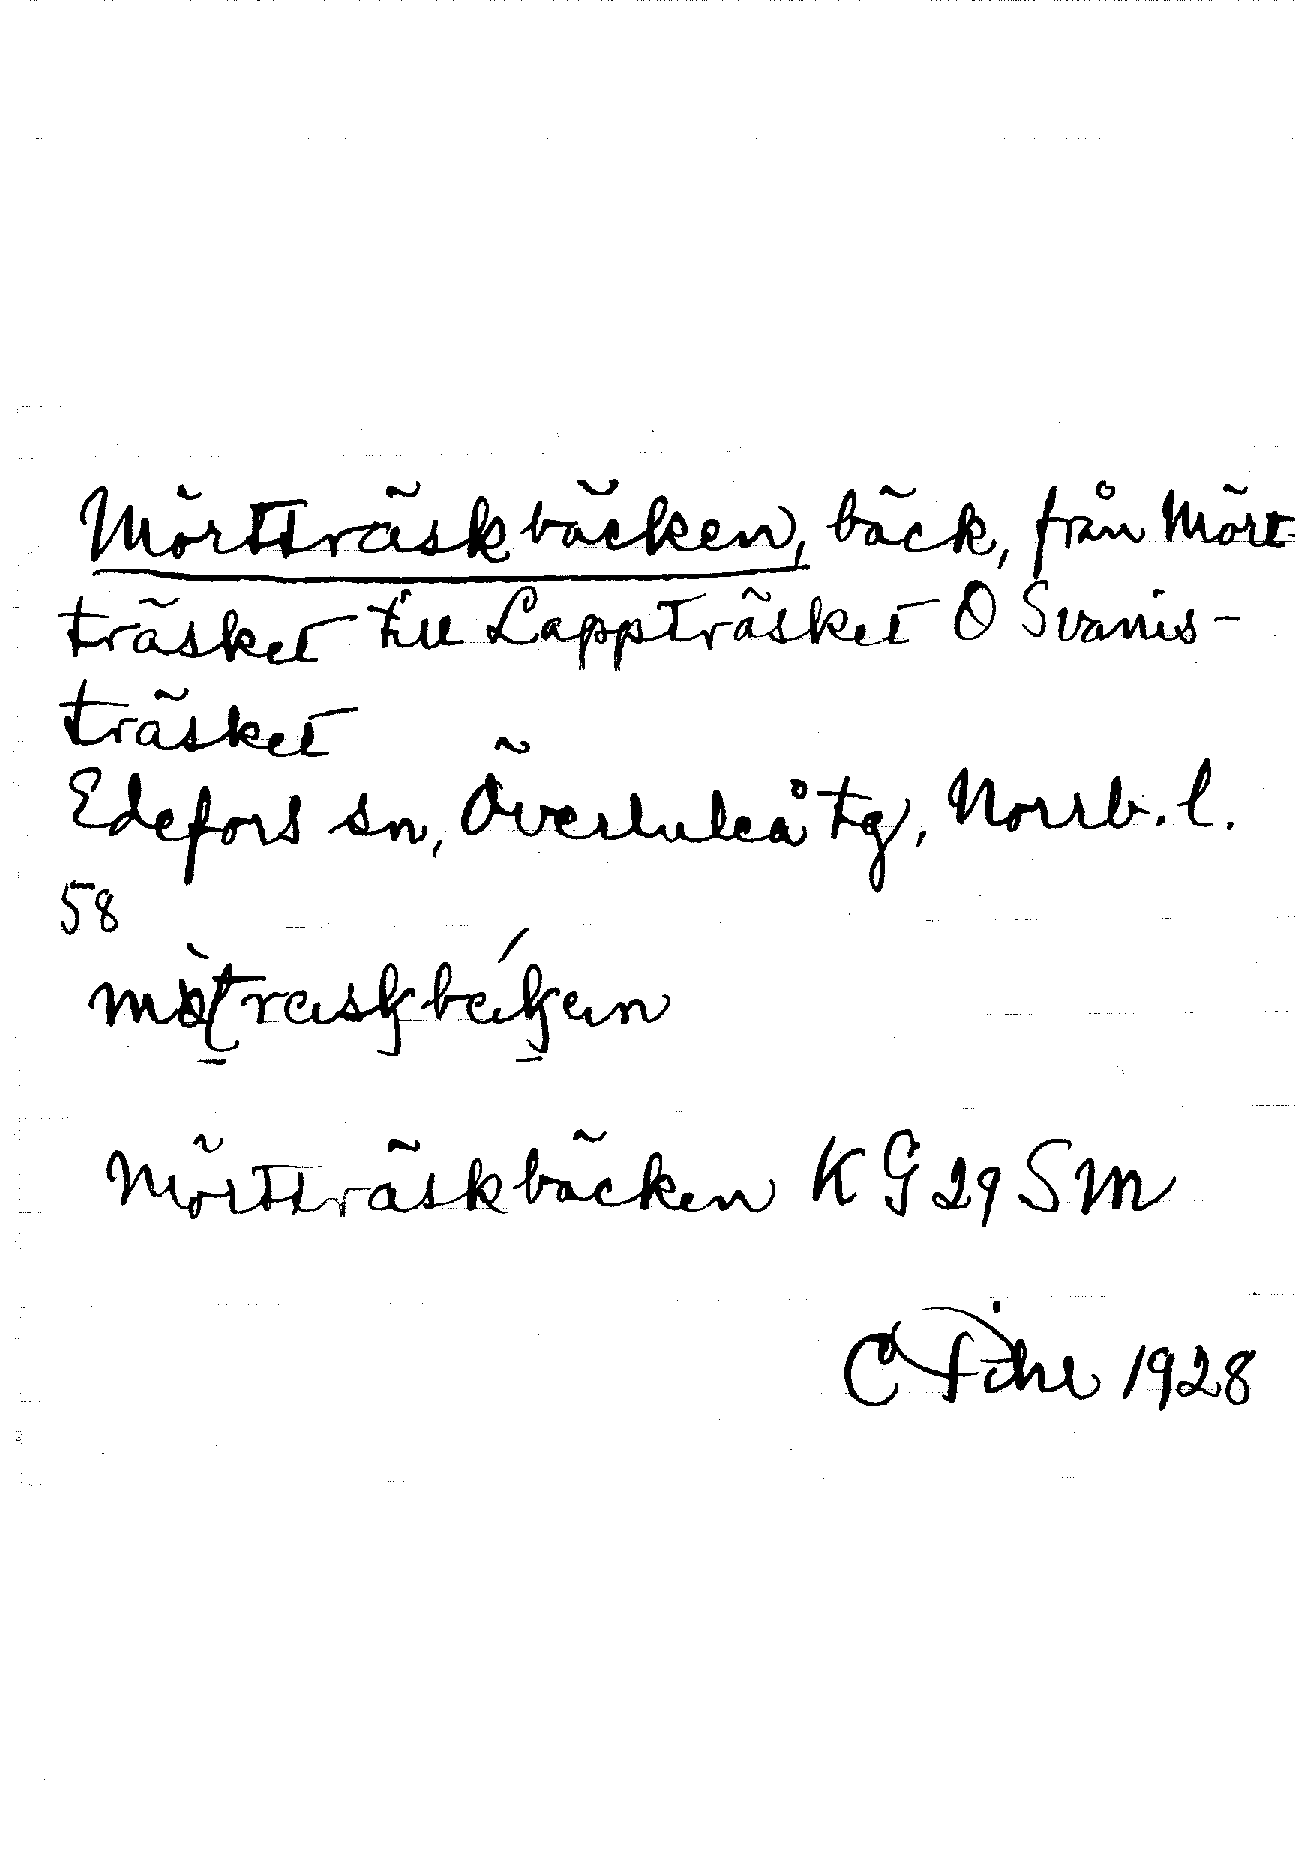 Mörtträskbäcken, bäck, från Mört-
träsket till Lappträsket O Svanis-
träsket
Edefors sn, Överluleå tg, Norrb. l.
58
Mörtträskbäcken KG 29 SM
C 1928